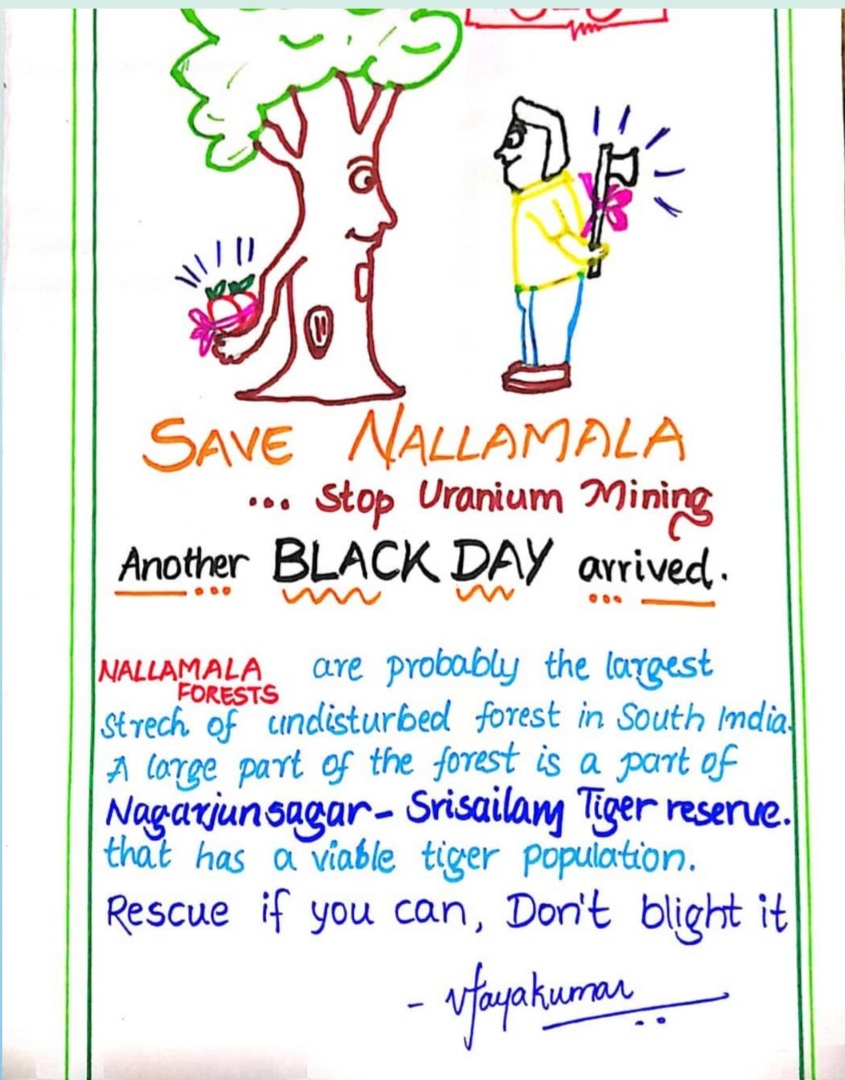 SAVE NALLAMALA
... Stop Uranium Mining
Another BLACK DAY arrived.
NALLAMALA FORESTS are probably the largest
strech of undisturbed forest in South India.
A large part of the forest is a part of
Nagarjunsagar - Srisailam Tiger reserve.
that has a viable tiger population.
Rescue if you can, Don't blight it
- Vijayakumar